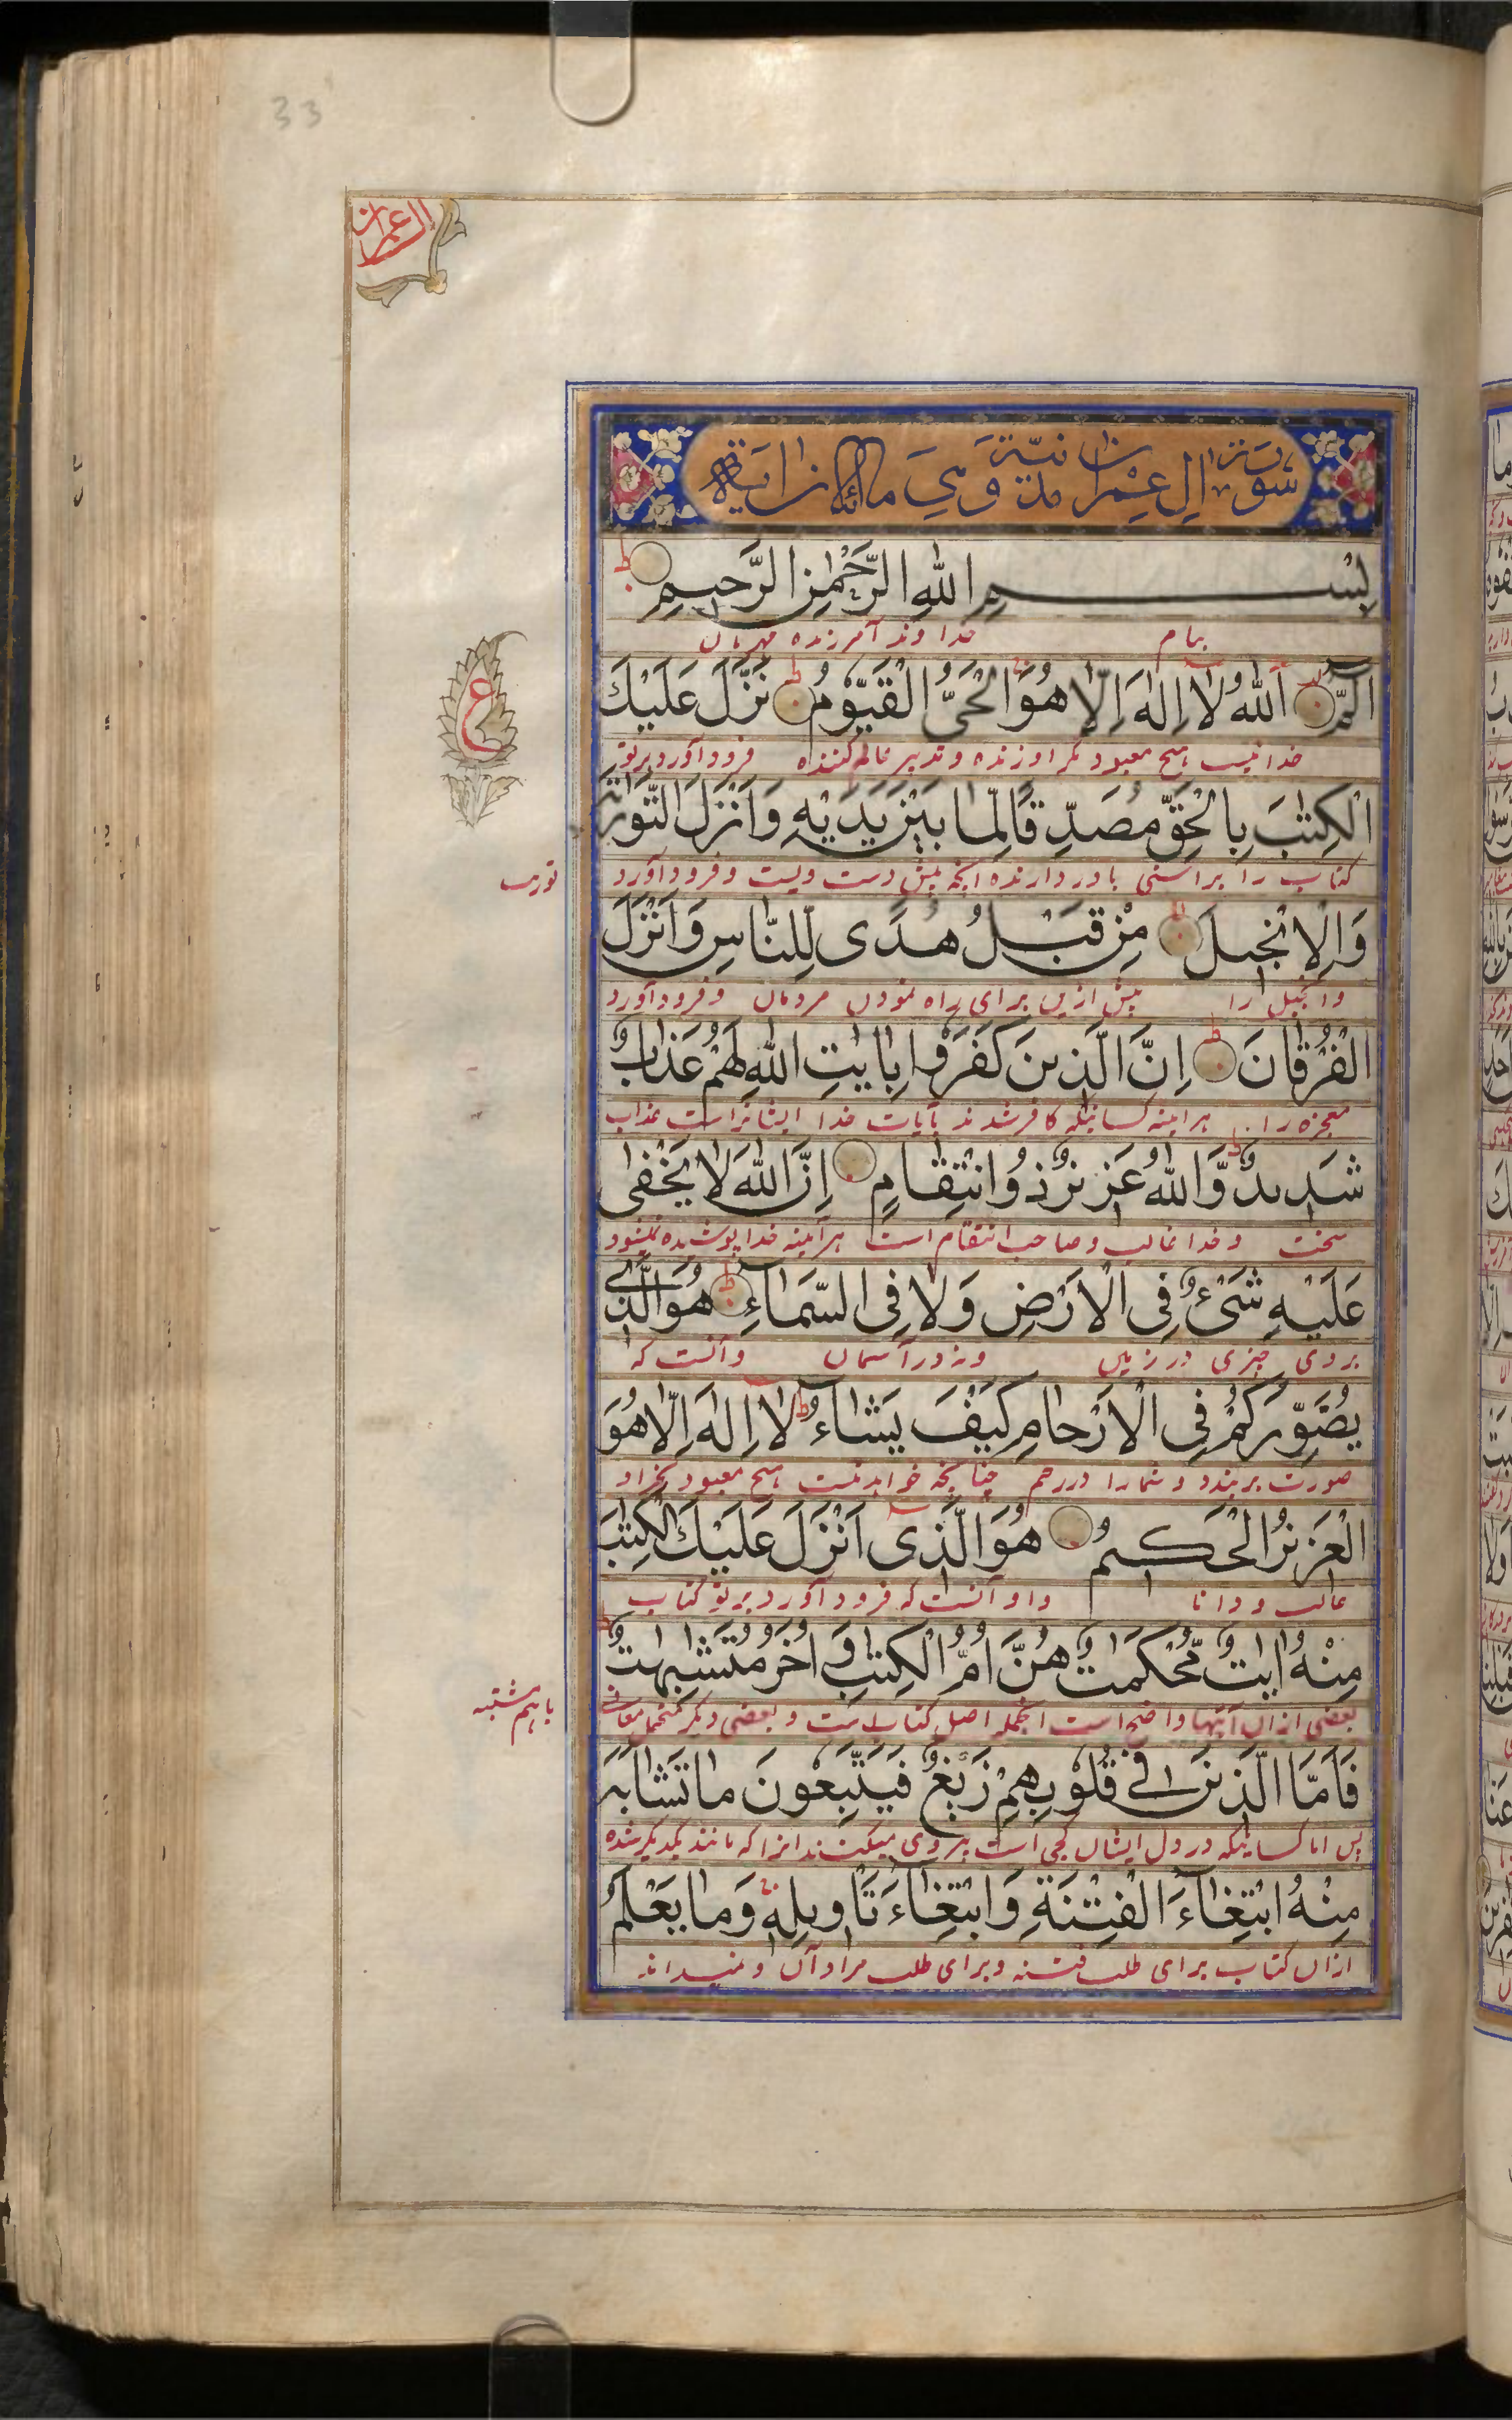 33
ال عمران
سورة ال عمران مدنية وهي مائتا اية
بسم الله الرحمن الرحيم
بنام خداوند آمرزنده مهربان
الٓمّٓ اَللهُ لَا اِلٰهَ اِلَّا هُوَ الْحَيُّ الْقَيُّوْمُ نَزَّلَ عَلَيْكَ
خدا نیست هیچ معبود مگر او زنده و تدبیر عالم کننده فرود آورد بر تو
ع
الْكِتٰبَ بِالْحَقِّ مُصَدِّقًا لِّمَا بَيْنَ يَدَيْهِ وَاَنْزَلَ التَّوْرٰىةَ
کتاب را براستی باور دارنده آنچه پیش دست ویست و فرود آورد
توریت
وَالْاِنْجِيْلَ مِنْ قَبْلُ هُدًى لِّلنَّاسِ وَاَنْزَلَ
و انجیل را پیش ازین برای راه نمودن مردمان و فرود آورد
الْفُرْقَانَ اِنَّ الَّذِيْنَ كَفَرُوْا بِاٰيٰتِ اللهِ لَهُمْ عَذَابٌ
معجزه را هرآینه کسانیکه کافر شدند بآیات خدا ایشانراست عذاب
شَدِيْدٌ وَّاللهُ عَزِيْزٌ ذُو انْتِقَامٍ اِنَّ اللهَ لَا يَخْفٰى
سخت و خدا غالب و صاحب انتقام است هرآینه خدا پوشیده نمیشود
عَلَيْهِ شَيْءٌ فِي الْاَرْضِ وَلَا فِي السَّمَآءِ هُوَ الَّذِيْ
بر وی چیزی در زمین و نه در آسمان و آنست که
يُصَوِّرُكُمْ فِي الْاَرْحَامِ كَيْفَ يَشَآءُ لَا اِلٰهَ اِلَّا هُوَ
صورت بر بندد و شما را در رحم چنانچه خواهد نیست هیچ معبود بجز او
الْعَزِيْزُ الْحَكِيْمُ هُوَ الَّذِيْ اَنْزَلَ عَلَيْكَ الْكِتٰبَ
غالب و دانا و او آنست که فرود آورد بر تو کتاب
مِنْهُ اٰيٰتٌ مُّحْكَمٰتٌ هُنَّ اُمُّ الْكِتٰبِ وَاُخَرُ مُتَشٰبِهٰتٌ
بعضی از آن آیتها واضح است آنجمله اصل کتاب است و بعضی دیگر محتمل معانی
باهم مشتبه
فَاَمَّا الَّذِيْنَ فِيْ قُلُوْبِهِمْ زَيْغٌ فَيَتَّبِعُوْنَ مَا تَشَابَهَ
پس اما کسانیکه در دل ایشان کجی است پیروی میکنند آنرا که مانند یکدیگر شده
مِنْهُ ابْتِغَآءَ الْفِتْنَةِ وَابْتِغَآءَ تَاْوِيْلِهٖ وَمَا يَعْلَمُ
از آن کتاب برای طلب فتنه و برای طلب مراد آن و نمیداند